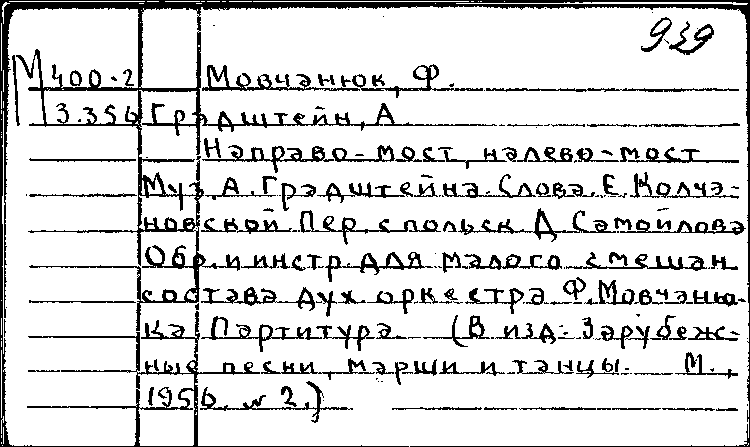 939
М 400-2 Мовчанюк, Ф.
3.356 Градштейн, А.
Направо-мост, налево-мост
Муз. А. Градштейна. Слова Е. Колча-
новской. Пер. с польск. Д. Самойлова
Обр. и инстр. для малого смешан.
состава дух. оркестра Ф. Мовчаню-
ка Партитура. (В изд: Зарубеж-
ные песни, марши и танцы. М.,
1956. № 2.)